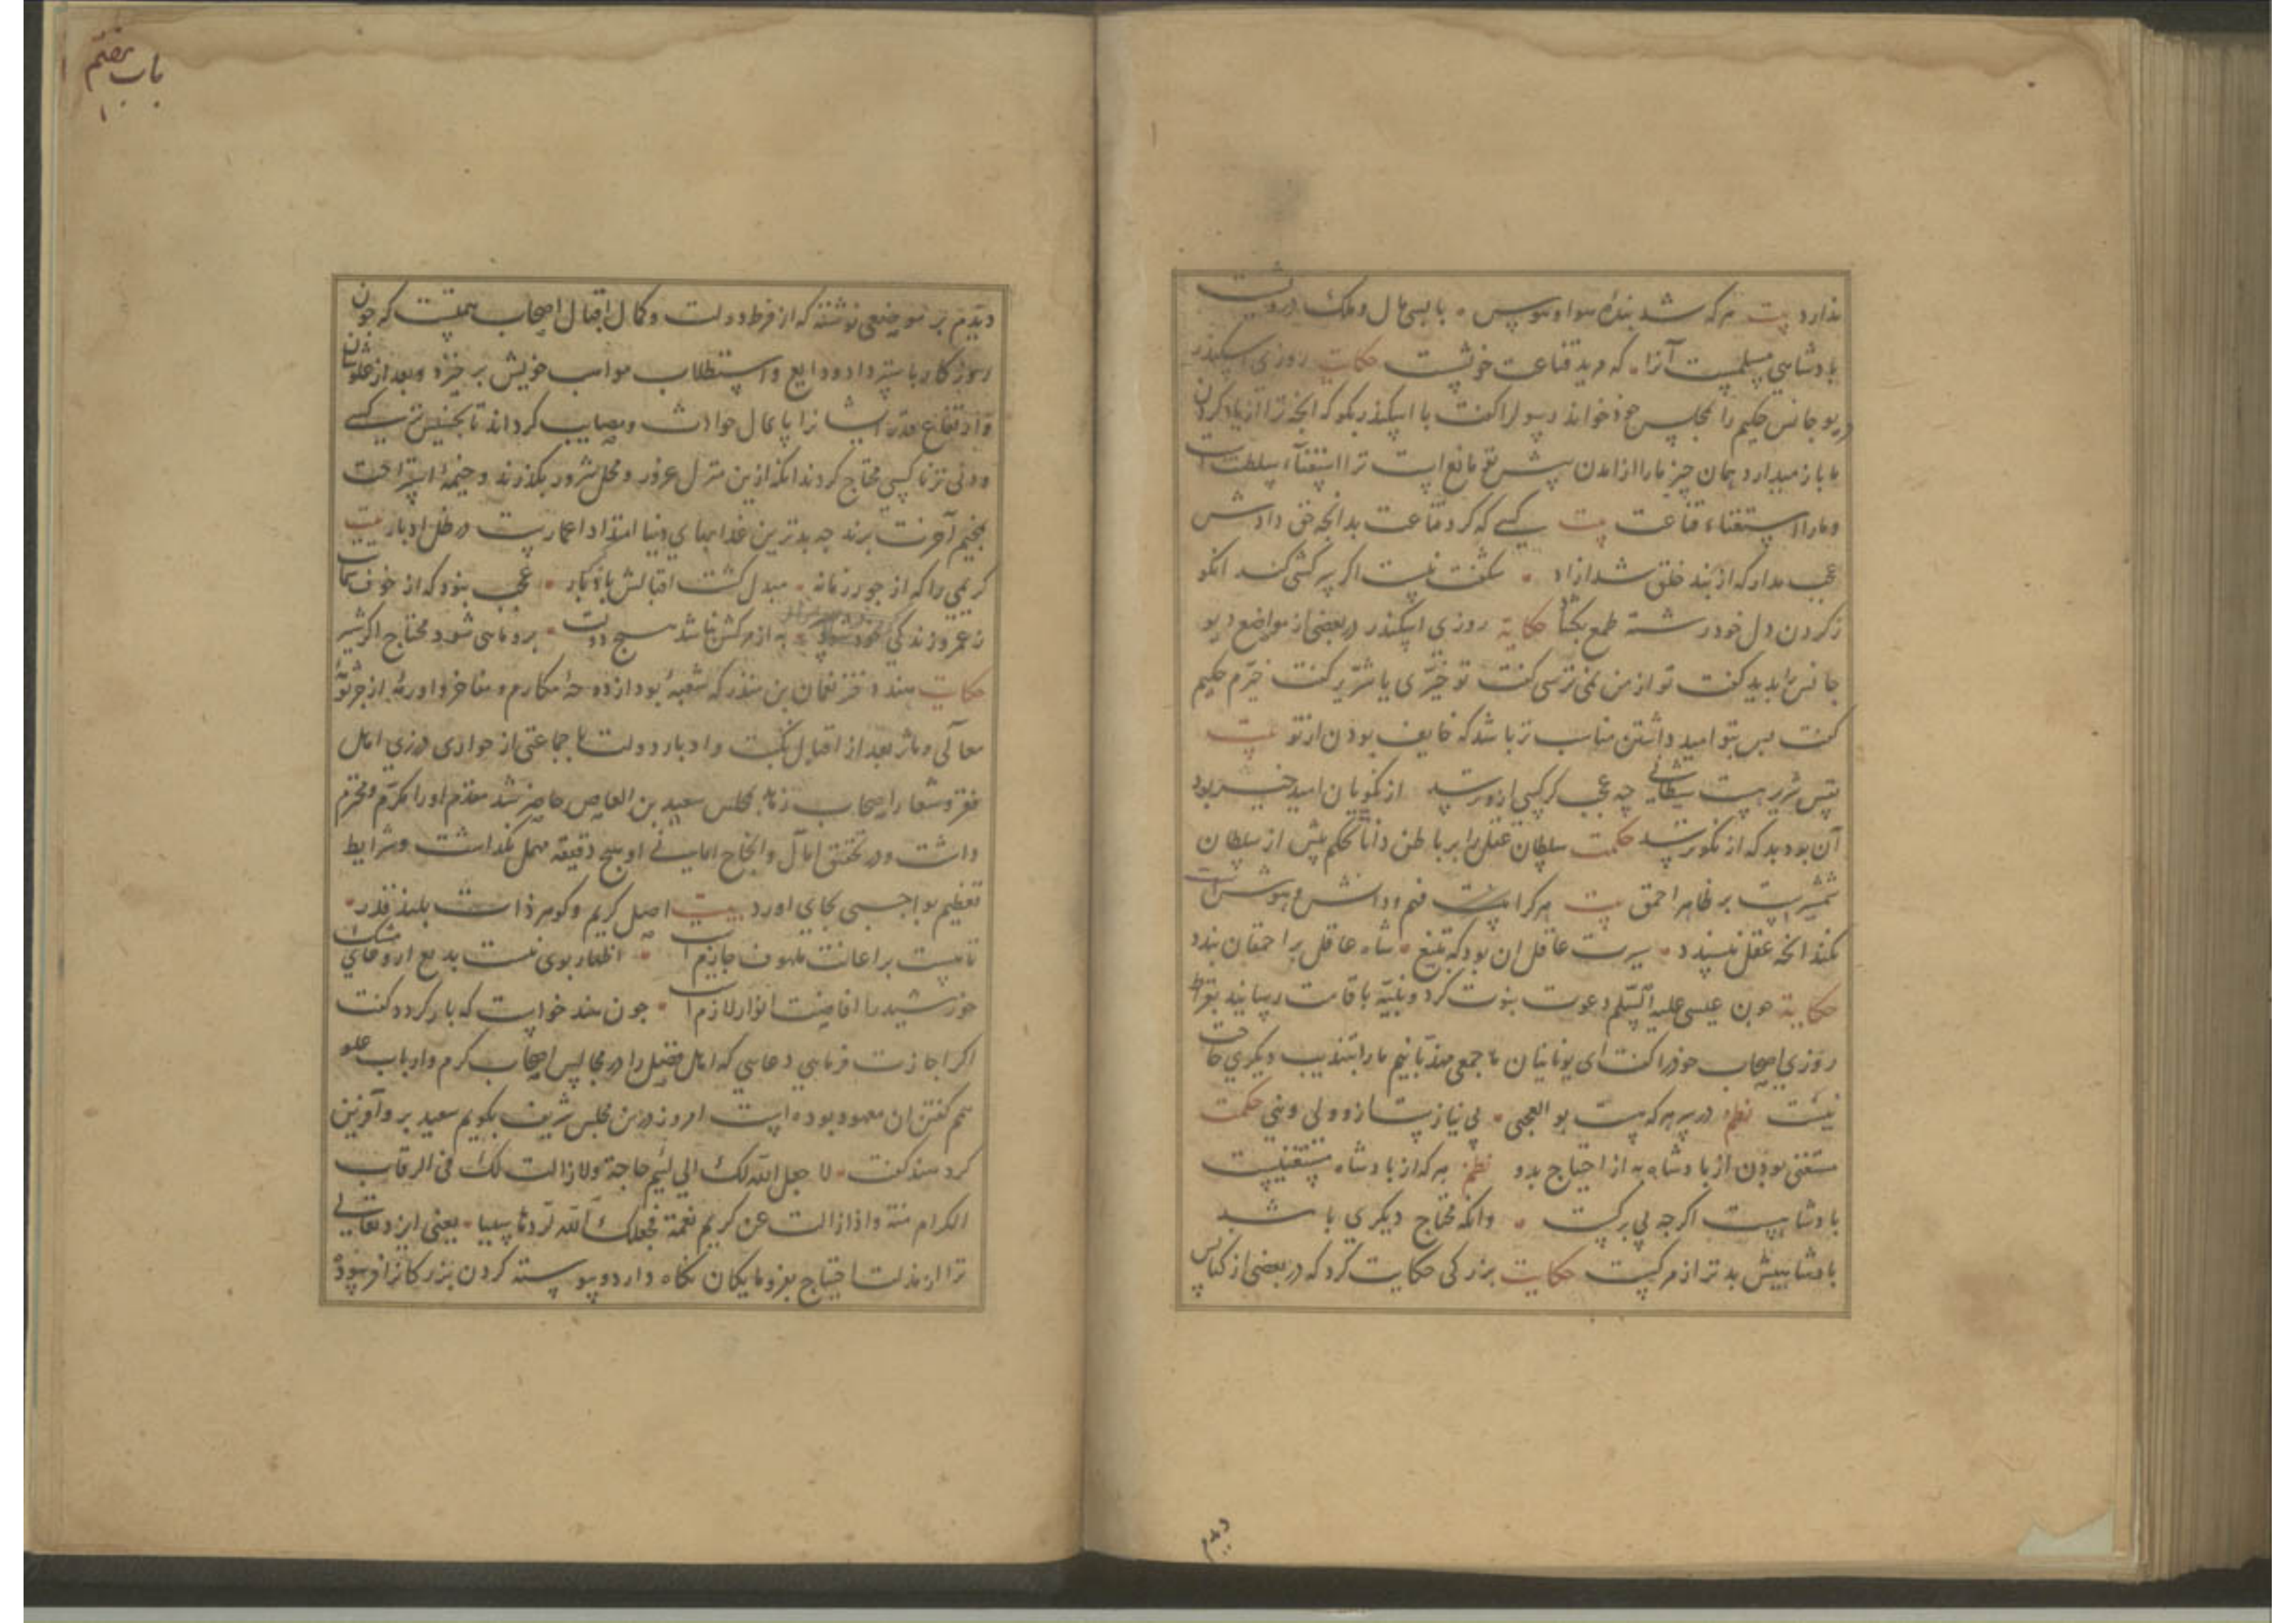 ندارد بیت هر که شد بندهٔ هوا و هوس با همه مال و ملک درویشست
بادشاهی مسلمست آنرا که مرید قناعت خویشست حکایت روزی اسکندر
دیوجانس حکیم را بمجلس خود خواند رسول را کفت با اسکندر بکو که آنچه ترا از یاد کردن
ما باز میدارد همان چیز ما را از آمدن پیش تو مانع است ترا استغناء سلطنت است
و ما را استغناء قناعت بیت کسی که کرد قناعت بدانچه حق دادش
عجب مدار که از بند خلق شد ازاد شکفت نیست اکر سرکشی کند انکو
ز کردن دل خود رشتهٔ طمع بکشاد حکایة روزی اسکندر در بعضی از مواضع دیو
جانس را بدید کفت تو از من نمی ترسی کفت تو خیّری یا شرّیر کفت خیّرم حکیم
کفت پس بتو امید داشتن مناسب تر باشد که خایف بودن از تو بیت
چه عجب کر کسی ازو ترسد از نکویان امید خیر بود
آن بود بد که از نکو ترسد حکمت سلطان عقل را بر باطن دانا تحکم بیش از سلطان
شمشیرست بر ظاهر احمق بیت هر کرا هست فهم و دانش و هوش
نکند انچه عقل نپسندد سیرت عاقل ان بود که بتیغ شاه عاقل بر احمقان بندد
حکایة چون عیسی علیه السّلم دعوت نبوت کرد و بیّنه باقامت رسانید بقراط
روزی اصحاب خود را کفت ای یونانیان ما جمعی مهذّبانیم ما را بتهذیب دیکری حاجت
نیست نظم در سر هر که هست بو العجبی بی نیازست از ولی و نبی حکمت
مستغنی بودن از بادشاه به از احتیاج بدو نظم هر که از بادشاه مستغنیست
بادشاهست اکرچه بی برکست وانکه محتاج دیکری باشد
بادشاهیش بدتر از مرکست حکایت بزرکی حکایت کرد که در بعضی از کنایس
دیدم
باب هفتم
دیدم بر موضعی نوشته که از فرط دولت و کمال اقبال اصحاب همتست که چون
روزکار باسترداد ودایع و استطلاب مواهب خویش برخیزد و بعد از علو شان
و ارتفاع قدر ایشانرا پایمال حوادث و مصایب کرداند تا بخسیس ترین کسی
و دنی تر ناکسی محتاج کردند انکه ازین منزل غرور و محل شرور بکذرند و خیمهٔ استراحت
بمخیم آخرت برند چه بدترین عذابهای دنیا امتداد اعمارست در ظل ادبار بیت
کریمی را که از جور زمانه مبدل کشت اقبالش بادبار عجب نبود که از خوف شمات
ز عمر و زندکی به از مرکش نباشد هیچ دولت برو ماهی شود محتاج اکر شیر
حکایت هند دختر نعمان بن منذر که شعبهٔ بود از دوحهٔ مکارم و مفاخر و اورمهٔ از جرثومهٔ
معالی و مآثر بعد از اقبال نکبت و ادبار دولت با جماعتی از جواری در زی اهل
فقر و شعار اصحاب بمجلس سعید بن العاص حاضر شد مقدم او را مکرّم و محترم
داشت و در تحقیق آمال و انجاح امانی او هیچ دقیقه مهمل نکذاشت و شرایط
تعظیم بواجبی بجای اورد بیت اصل کریم و کوهر ذات بلند قدر
باعثست بر اعانت ملهوف جازم است اظهار بوی نیست بدیع از و
خورشید را افاضت انوار لازم است چون هند خواست که باز کردد کفت
اکر اجازت فرمایی دعایی که اهل فضل را در مجالس اصحاب کرم و ارباب علو
همم کفتن ان معهود بوده است امروز درین مجلس شریف بکویم سعید برو آفرین
کرد هند کفت لا جعل الله لک الی لئیم حاجة ولا زالت لک فی الرقاب
الکرام منة واذا زالت عن کریم نعمة فجعلک الله لردّها سببا یعنی ایزد تعالی
ترا از مذلت احتیاج بفرومایکان نکاه دارد و پیوسته کردن بزرکانرا